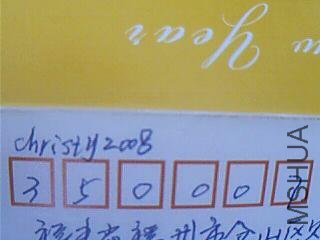 w Year
christy2008
3 5 0 0 0
福建省福州市仓山区
MSHUA